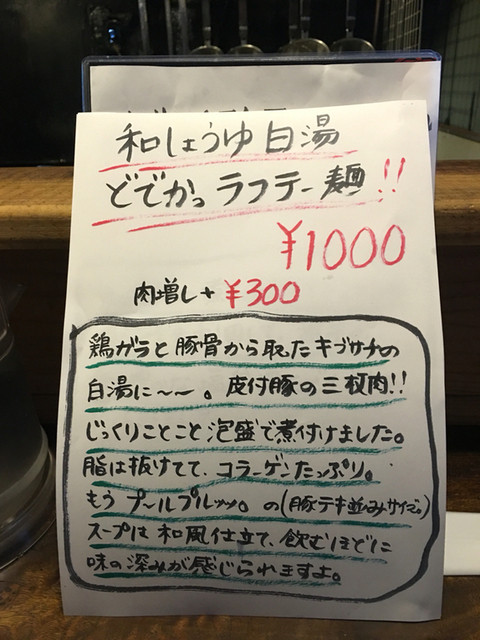 和しょうゆ白湯
どでかっラフテー麺!!
¥1000
肉増し+ ¥300
鶏ガラと豚骨から取ったキヅサナの
白湯に〜〜。皮付豚の三枚肉!!
じっくりことこと泡盛で煮付けました。
脂は抜けてて、コラーゲンたっぷり。
もうプールプルッッ。の(豚テキ並みサイズ。)
スープは和風仕立て、飲むほどに
味の深みが感じられますよ。